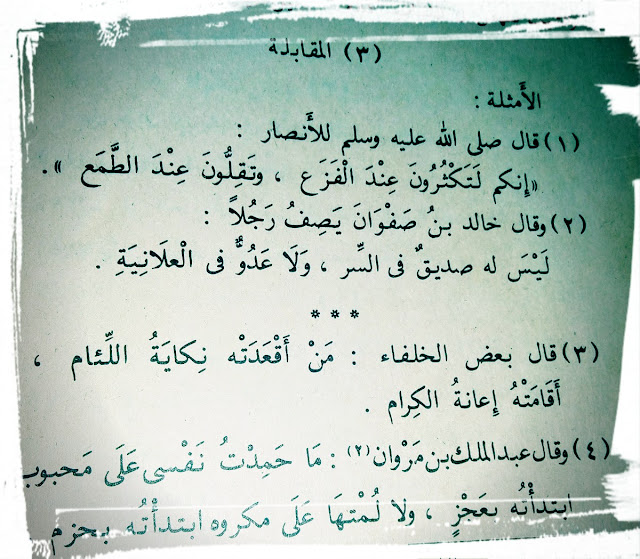 (٣) المقابلة
الأَمثلة :
(١) قال صلى الله عليه وسلم للأَنصار :
«إنكم لَتَكْثُرُونَ عِنْدَ الْفَزَع ، وتَقِلُّونَ عِنْدَ الطَّمَع ».
(٢) وقال خالد بنُ صَفْوَانَ يَصِفُ رَجُلاً :
لَيْسَ له صديقٌ فى السِّر ، وَلَا عَدُوٌّ فى الْعلَانِيَةِ .
***
(٣) قال بعض الخلفاء : مَنْ أَقْعَدَتْه نِكايَةُ اللِّئام ،
أَقَامَتْهُ إِعانةُ الكِرام .
(٤) وقال عبد الملك بن مَرْوان (٢) : مَا حَمِدْتُ نَفْسى عَلَى مَحبوب
ابتدأْتُه بعَجْزٍ ، ولا لُمْتهَا عَلَى مكروه ابتدأْتُه بحزم